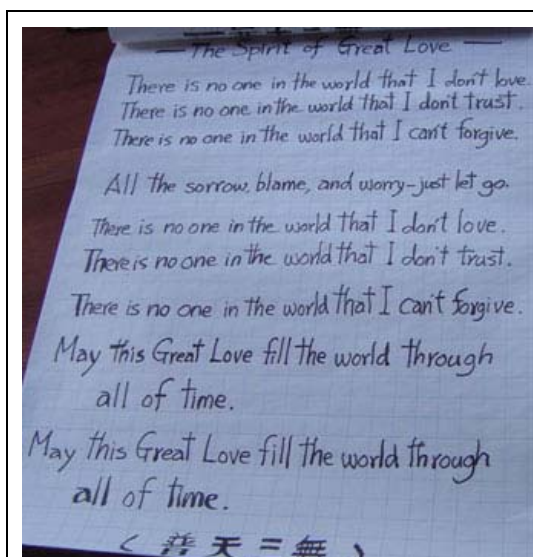 — The Spirit of Great Love —
There is no one in the world that I don't love.
There is no one in the world that I don't trust.
There is no one in the world that I can't forgive.
All the sorrow, blame, and worry-just let go.
There is no one in the world that I don't love.
There is no one in the world that I don't trust.
There is no one in the world that I can't forgive.
May this Great Love fill the world through
all of time.
May this Great Love fill the world through
all of time.
< 普天三無 >